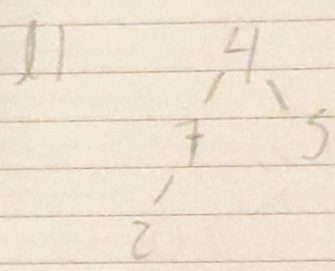 11 4
/ \
7 5
/
2